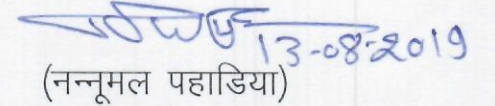 13-08-2019
(नन्नूमल पहाडिया)